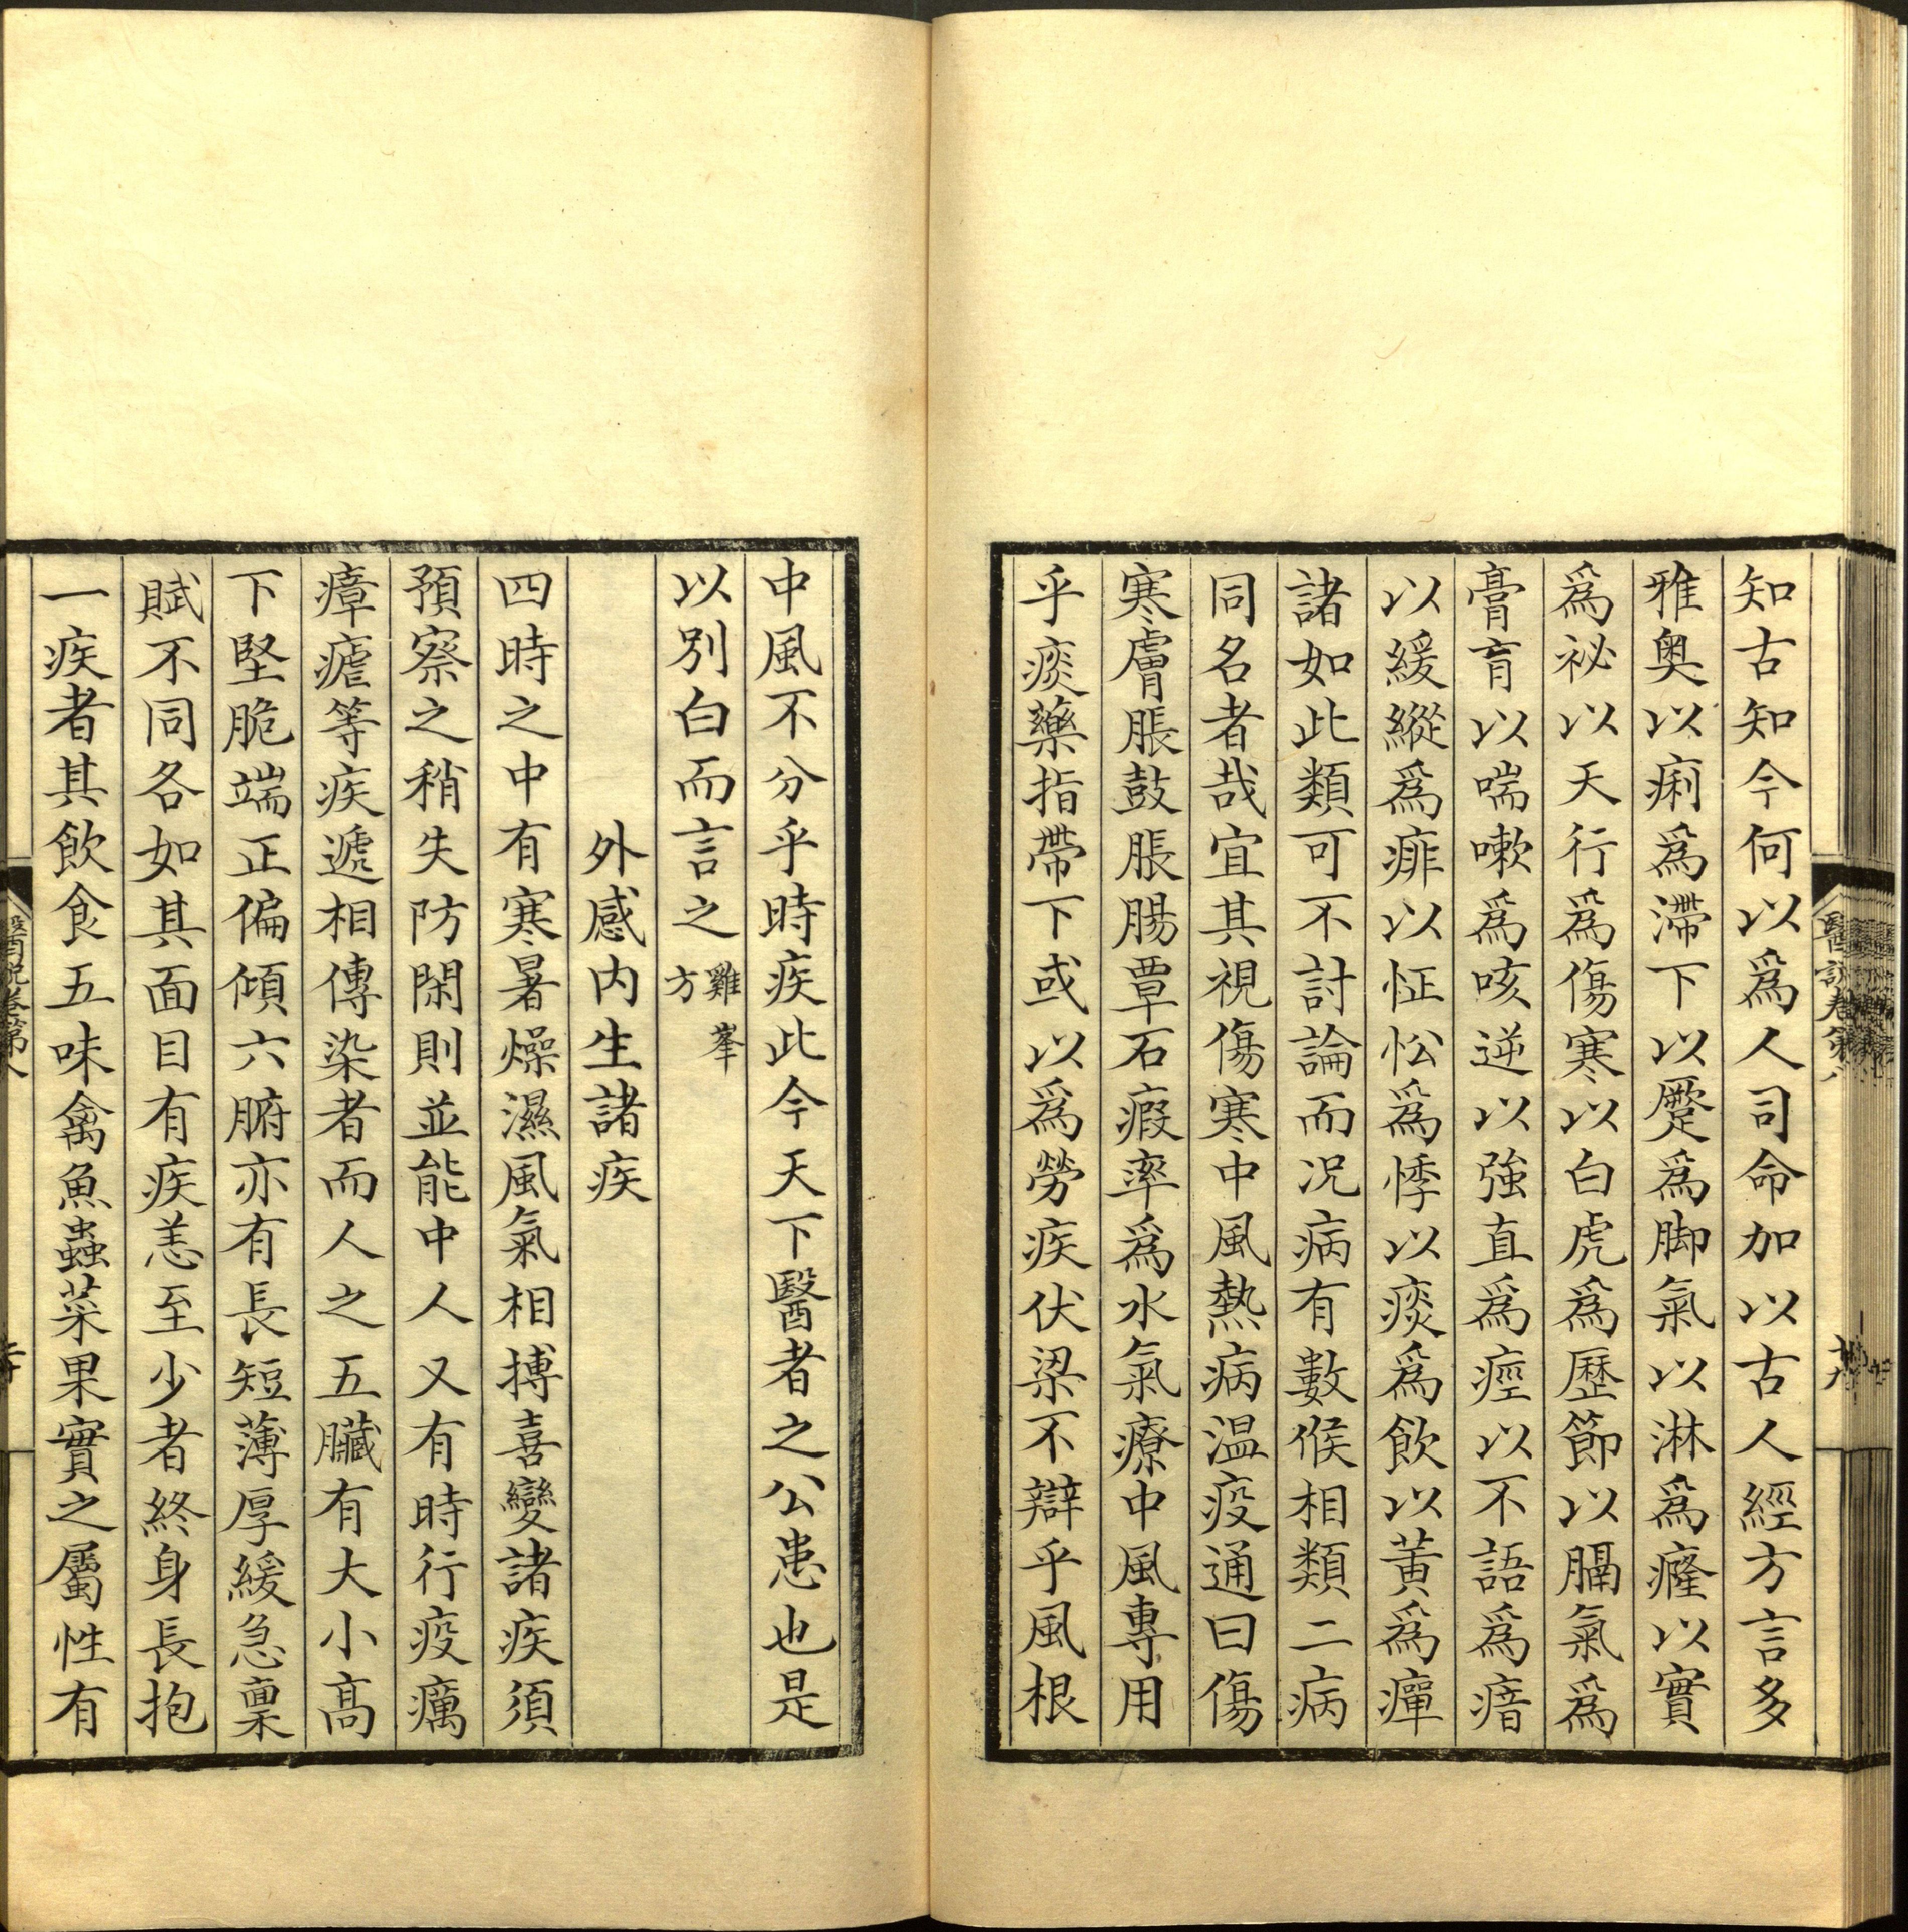 知古知今何以爲人司命加以古人經方言多
雅奥以痢爲滯下以躄爲脚氣以淋爲癃以實
爲祕以天行爲傷寒以白虎爲歷節以膈氣爲
膏肓以喘嗽爲咳逆以強直爲痙以不語爲瘖
以緩縱爲痱以怔忪爲悸以痰爲飲以黄爲癉
諸如此類可不討論而况病有數候相類二病
同名者哉宜其視傷寒中風熱病温疫通曰傷
寒膚脹鼓脹腸覃石瘕率爲水氣療中風專用
乎痰藥指帶下或以爲勞疾伏梁不辯乎風根
中風不分乎時疾此今天下醫者之公患也是
以别白而言之雞峯方
外感内生諸疾
四時之中有寒暑燥濕風氣相搏喜變諸疾須
預察之稍失防閑則並能中人又有時行疫癘
瘴瘧等疾遞相傳染者而人之五臟有大小高
下堅脆端正偏傾六腑亦有長短薄厚緩急稟
賦不同各如其面目有疾恙至少者終身長抱
一疾者其飲食五味禽魚蟲菜果實之屬性有
醫説卷第八